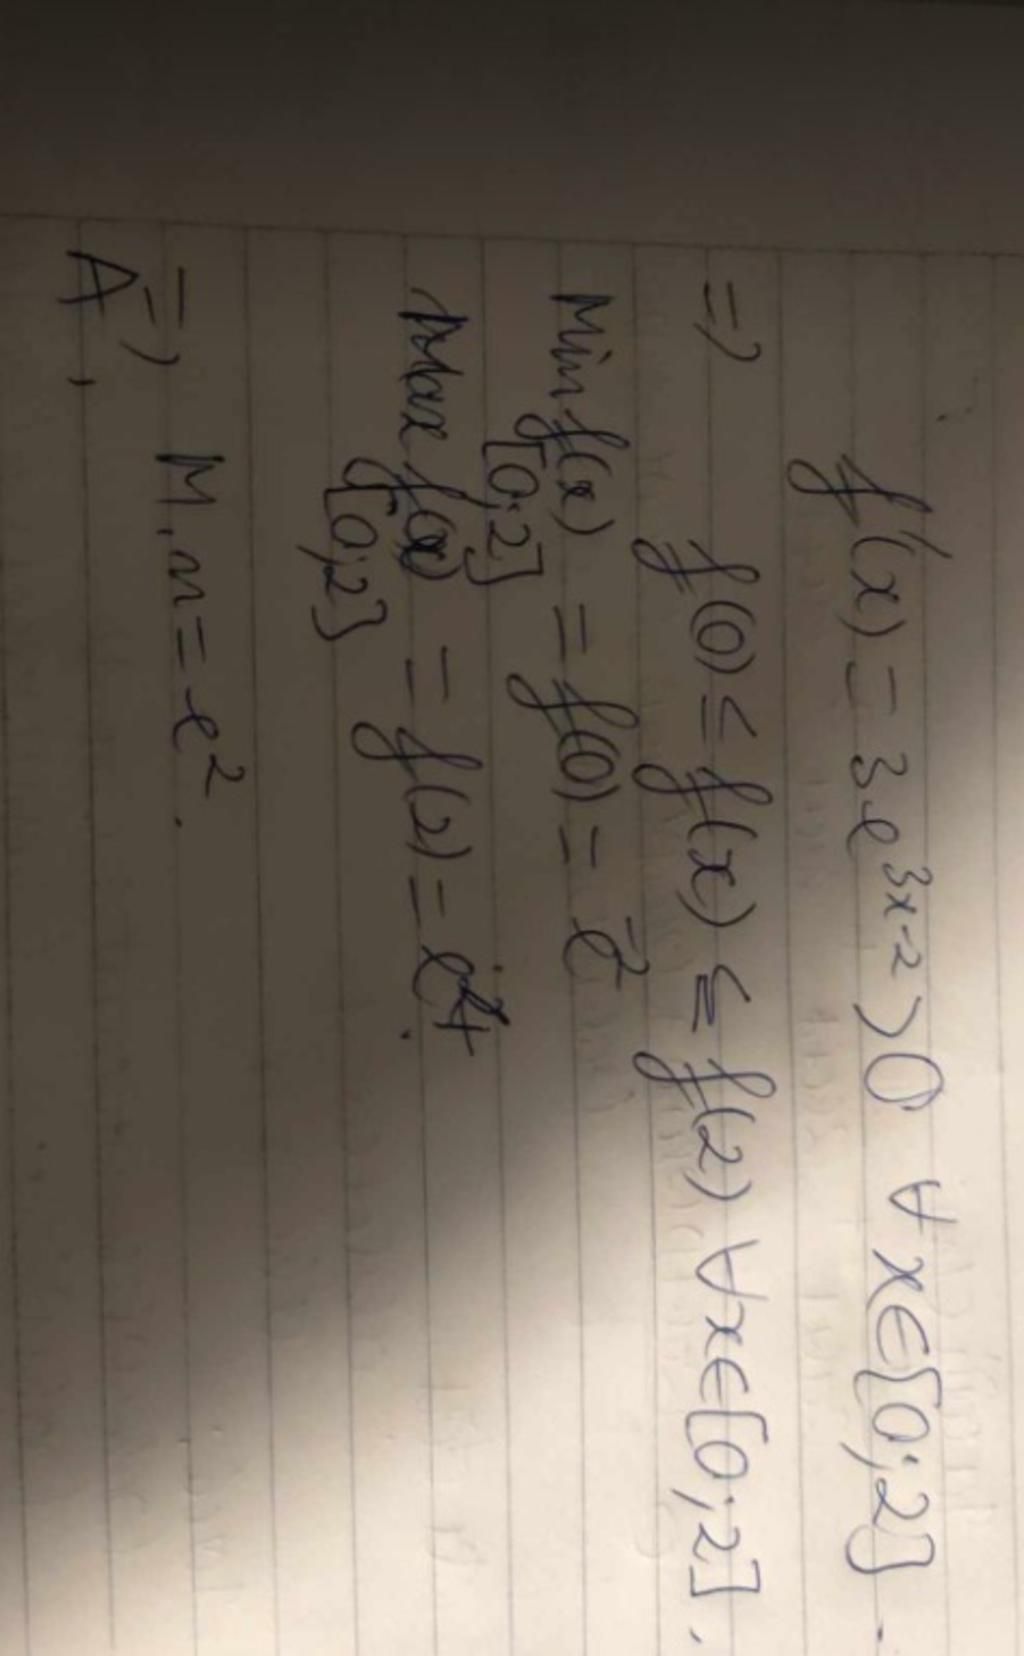 f'(x) = 3e^{3x-2} > 0 ∀ x ∈ [0;2].
=> f(0) ≤ f(x) ≤ f(2) ∀x ∈ [0;2].
Min f(x) = f(0) = e^{-2}
[0;2]
Max f(x) = f(2) = e^4.
[0;2]
=> M.m = e^2.
A,